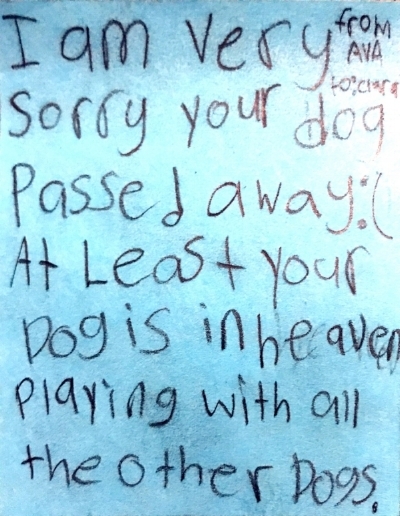 I am very
from
AVA
to:clara
Sorry your dog
Passed away:(
At Least your
Dog is in heaven
playing with all
the other Dogs.